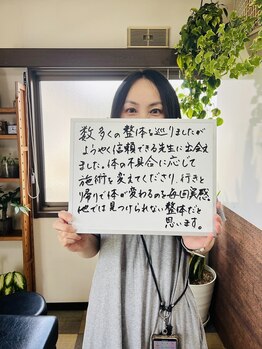 数多くの整体を巡りましたが
ようやく信頼できる先生に出会え
ました。体の不具合に応じて
施術を変えてくださり、行きと
帰りで体が変わるのを毎回実感
他では見つけられない整体だと
思います。